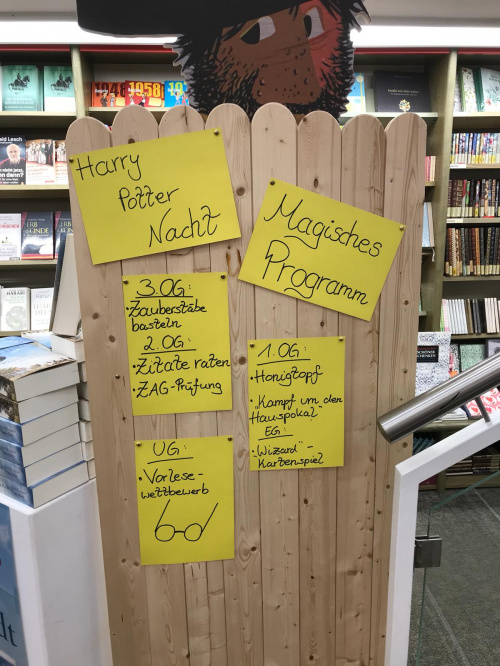 Harry
Potter
Nacht
Magisches
Programm
3.OG:
• Zauberstäbe
basteln
2.OG:
• Zitate raten
• ZAG-Prüfung
1.OG:
• Honigtopf
• "Kampf um den
Hauspokal"
EG:
• "Wizard"-
Kartenspiel
UG:
• Vorlese-
wettbewerb
1948
1958